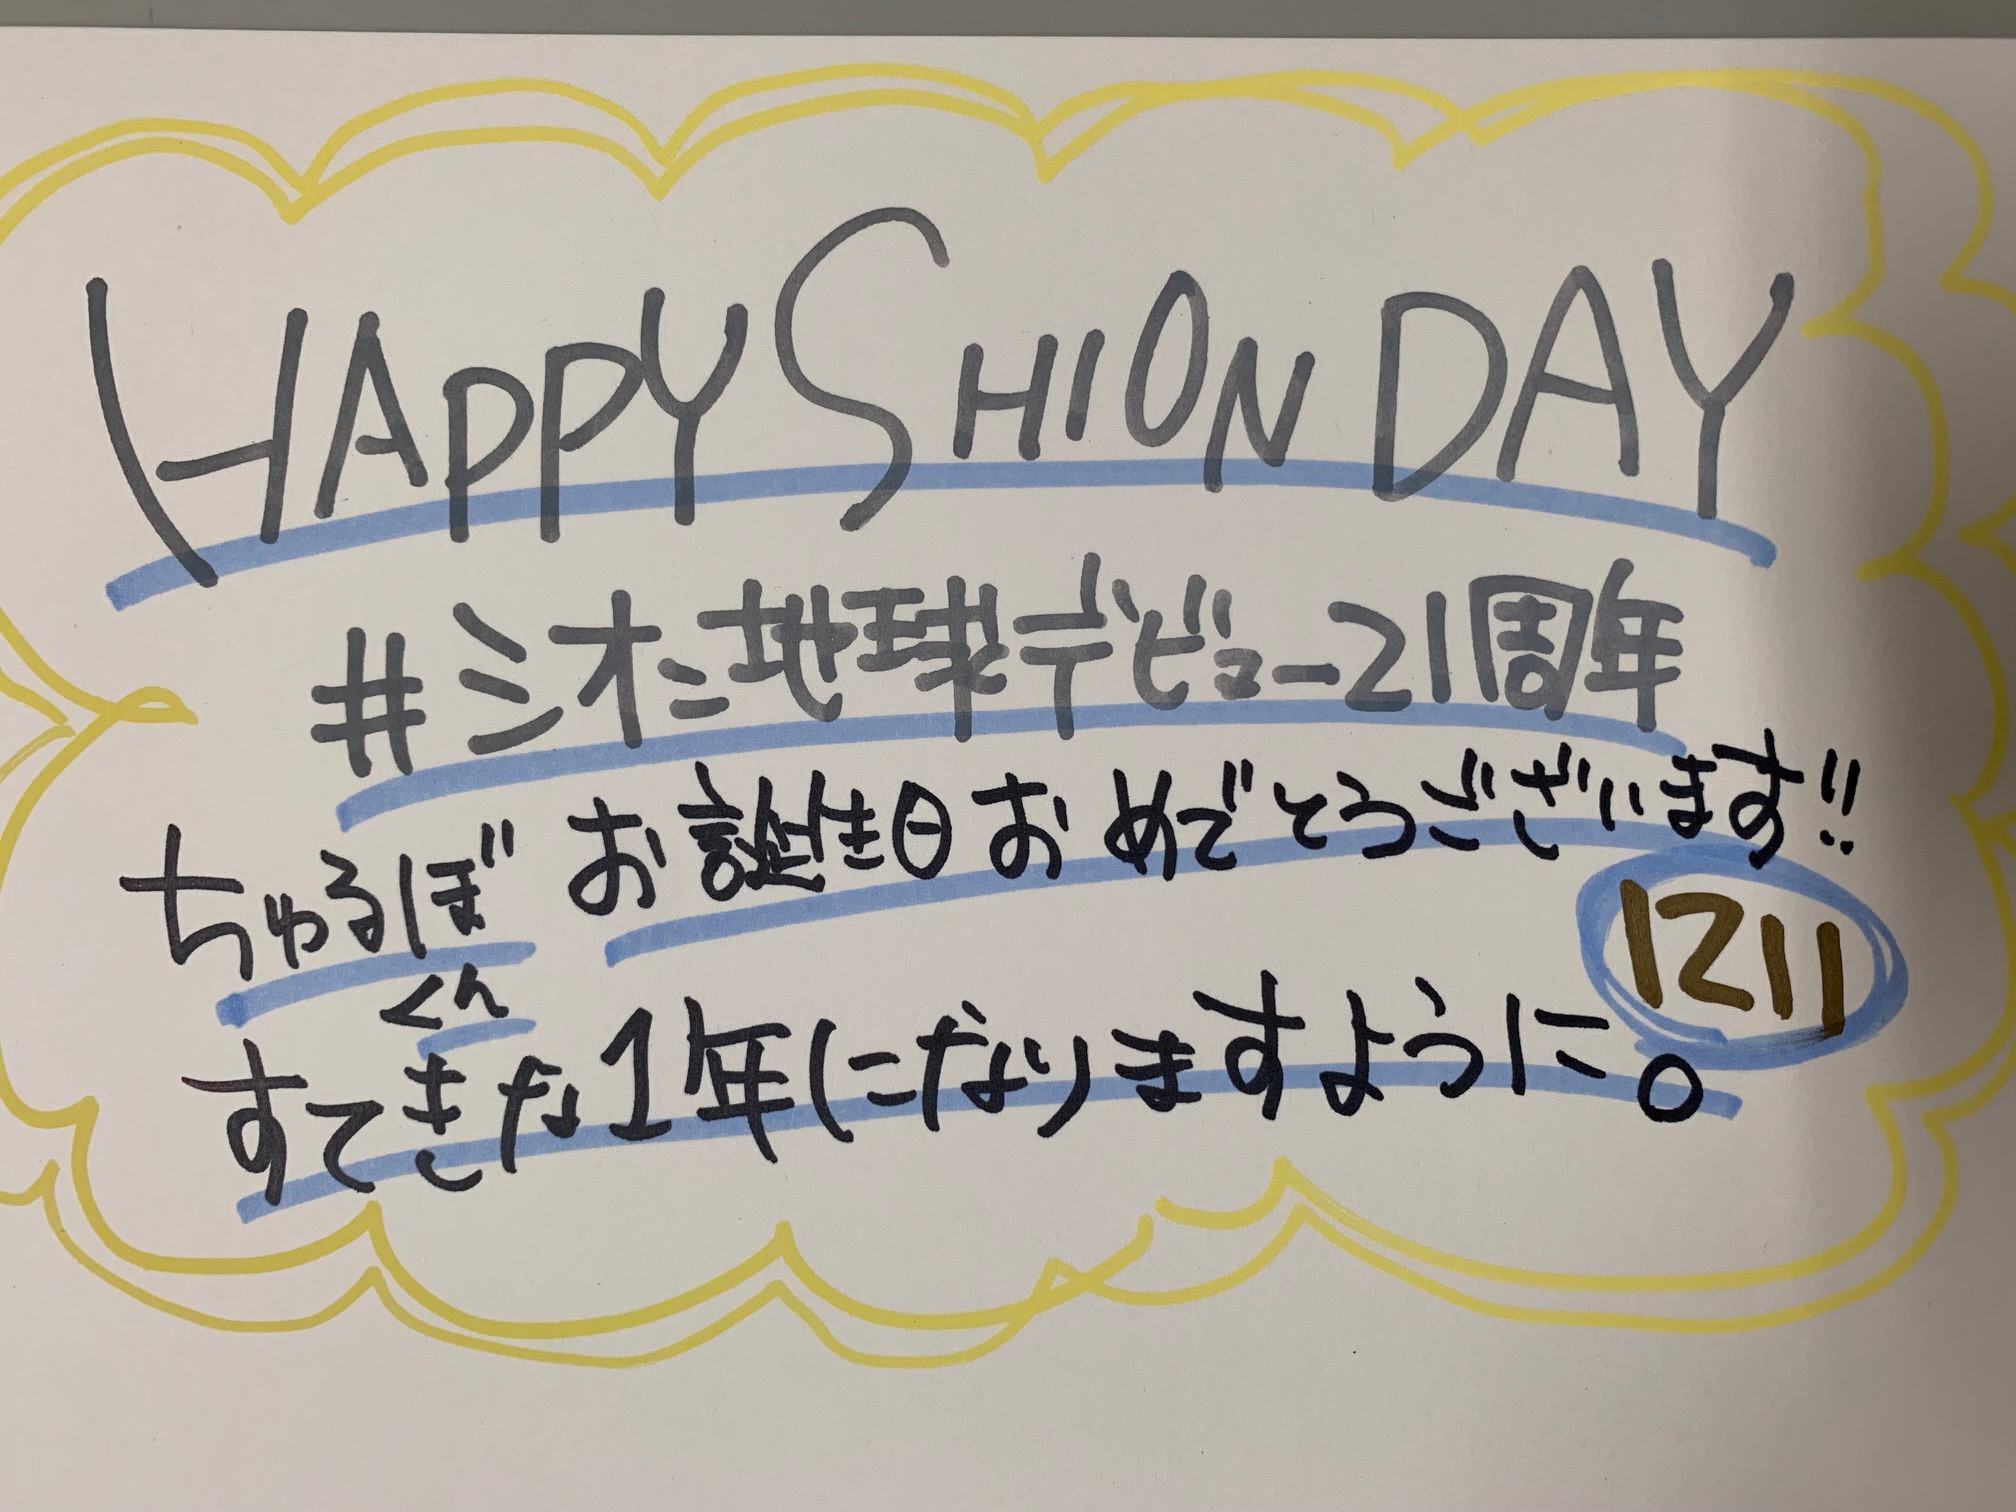 HAPPY SHION DAY
#シオン地球デビュー21周年
ちゅるぼ お誕生日おめでとうございます!!
くん
1211
すてきな1年になりますように。